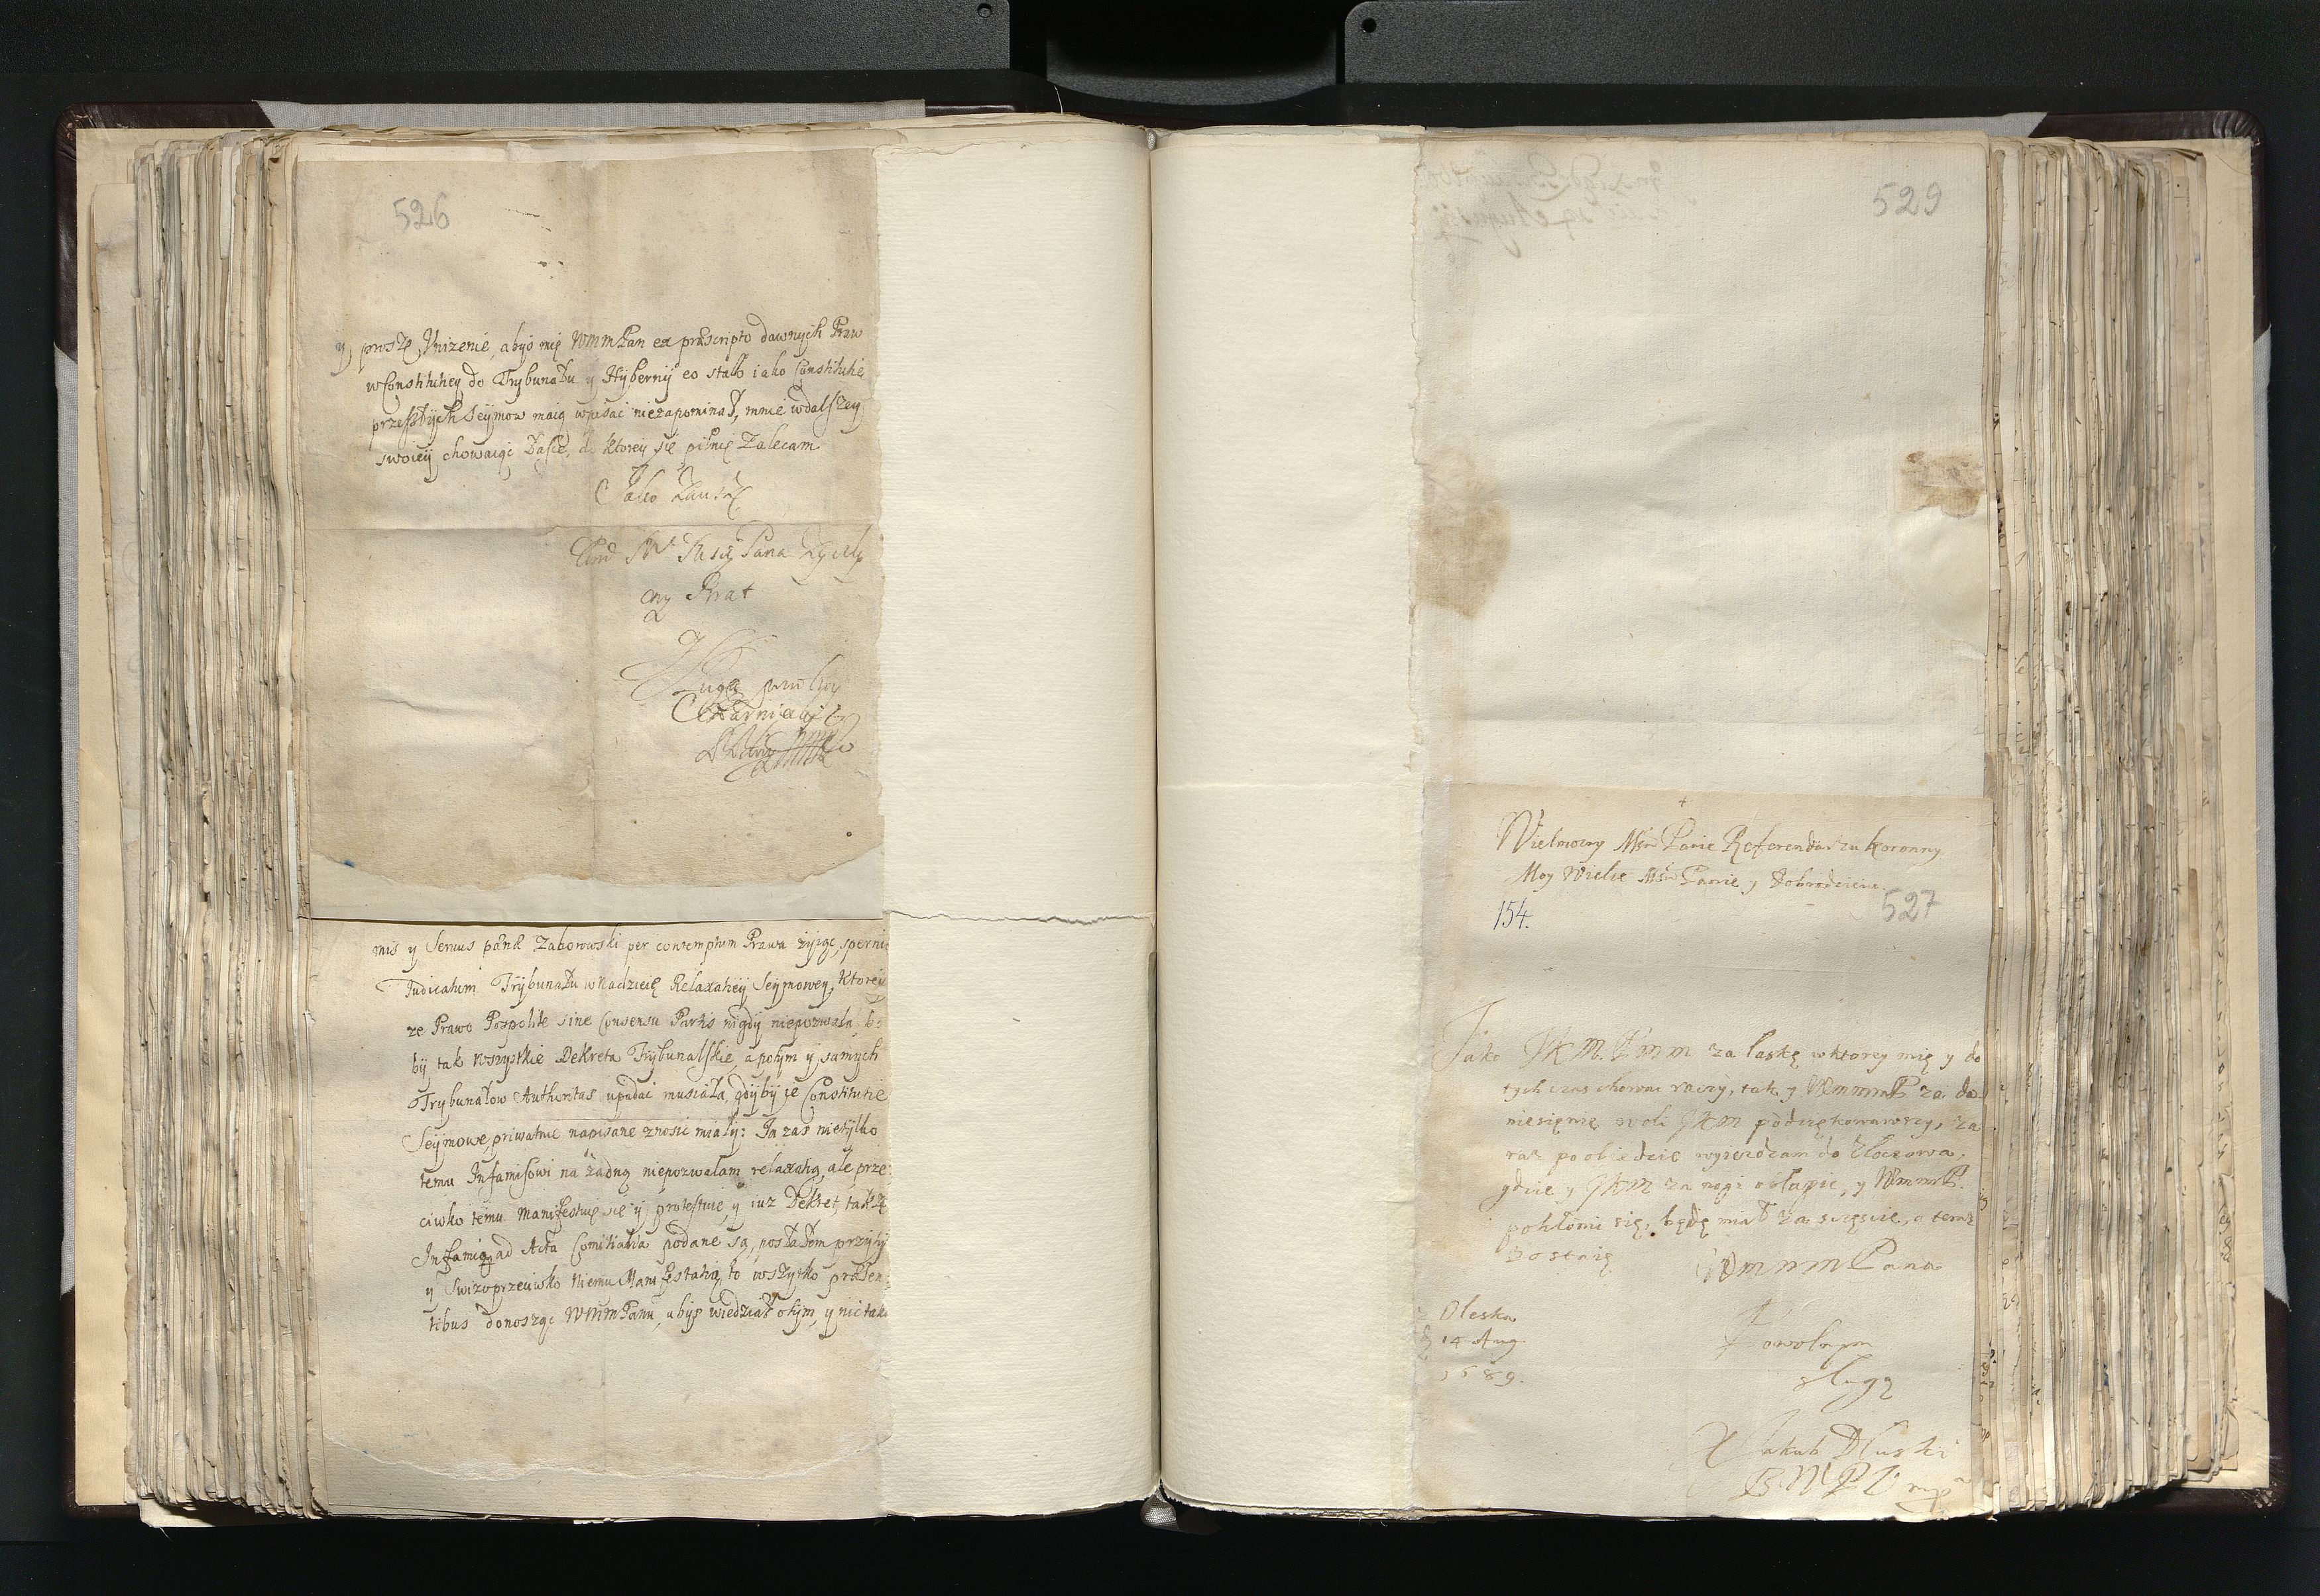 526
y proszę Uniżenie, abyś mię WMMPan ex præscripto dawnych Praw
w Constitucey do Trybunału y Hyberny eo stylo iako Constitucie
przeszłych Seymow maią wpisac niezapominał, mnie w dalszey
swoiey chowaiąc łasce, do ktorey się pilnie zalecam
Jako
Brat
Sługa
mis y Servus pane Zaborowski per contemptum Prawa żyiąc, sperni
Judicatum Trybunału w nadzieię Relaxatiey Seymowey, Ktorey
ze Prawo Pospolite sine Consensu Partis nigdy niepozwala, bo
by tak wszystkie Dekreta Trybunalskie, a potym y samych
Trybunałow Authoritas upadac musiała, gdyby ie Constitucie
Seymowe, priwatnie napisane znosic miały: Ja zas nietylko
temu Infamisowi na żadną niepozwalam relaxatią, ale prze
ciwko temu Manifestuię się y protestuię, y iuz Dekret, także
Infamią ad Acta Comitialia podane są, posłałem przy ty
y Swizoprzeciwko niemu Manifestatią, to wszytko præsen
tibus donosząc WMMPanu, abyś wiedział o tym, y nic tak
529
Wielmozny Mśći Panie Referendarzu Koronny
Moy Wielce Mśći Panie y Dobrodzieiu.
527
154.
Jako JKM. PMM za łaskę w ktorey mię y do
tych czas chowac raczy, tak y WMMMP za do
niesienie woli JKM podziękowawszy, za
raz po obiedzie wyiezdzam do Złoczowa,
gdzie y JKM za nogi obłapic, y WMMMP.
pokłonic się, będę miał za szczęscie, a teraz
zostaię
WMMMPana
z Oleska
14 Aug
1689.
Powolnym
sługą
X Jakub Dłuski